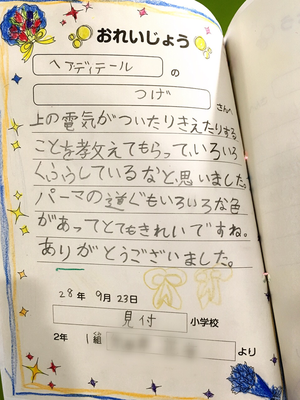 おれいじょう
ヘアディテール の
つげ さんへ
上の電気がついたりきえたりする
ことを教えてもらって、いろいろ
くふうしているなと思いました。
パーマの道ぐもいろいろな色
があってとてもきれいですね。
ありがとうございました。
28年 9月 23日
見付 小学校
2年 1組 より